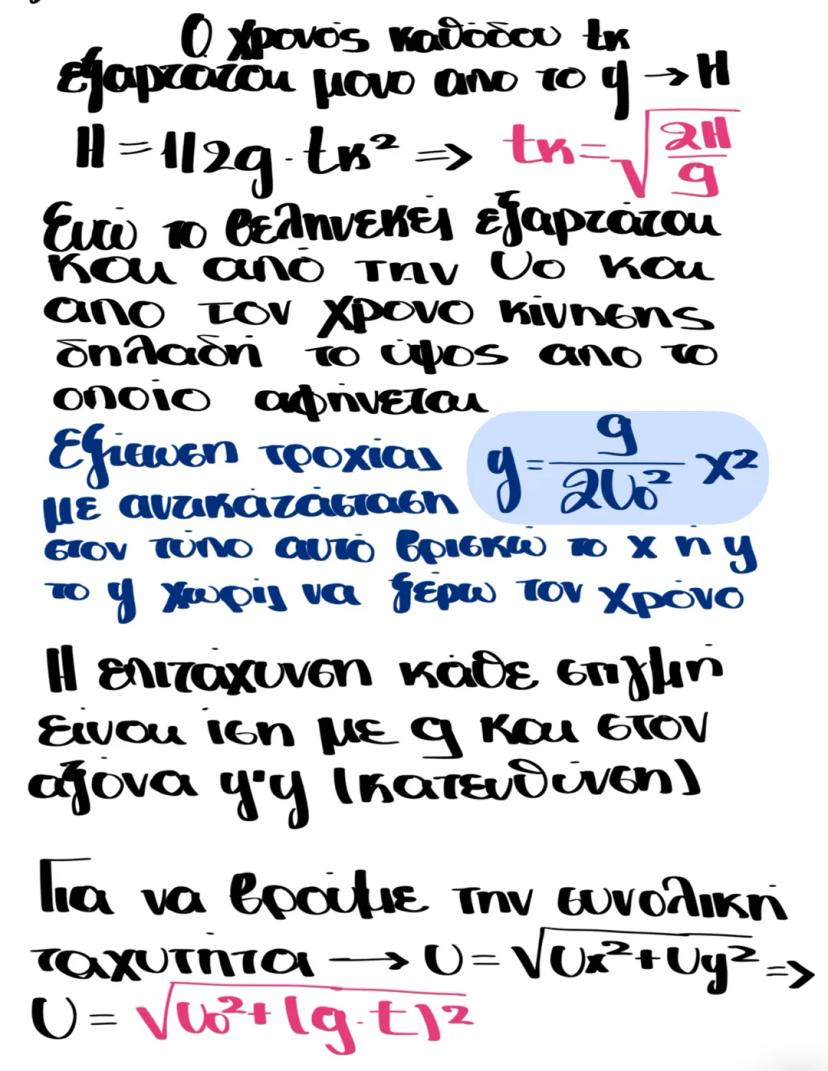 Ο χρονος καθόδου tκ
εξαρτάται μονο απο το y → H
H = 1/2g · tκ² => tκ = √2H/g
Ενώ το βεληνεκές εξαρτάται
και από την υο και
απο τον χρονο κίνησης
δηλαδή το ύψος απο το
οποίο αφήνεται
Εξίσωση τροχιάς y = g/2υ₀² x²
με αντικατάσταση
στον τύπο αυτό βρισκω το x ή y
το y χωρίς να ξέρω τον χρόνο
Η επιτάχυνση κάθε στιγμή
ειναι ίση με g και στον
αξόνα y'y (κατευθύνση)
Για να βρούμε την συνολική
ταχυτητα → υ = √υx² + υy² =>
υ = √υ₀² + (g · t)²